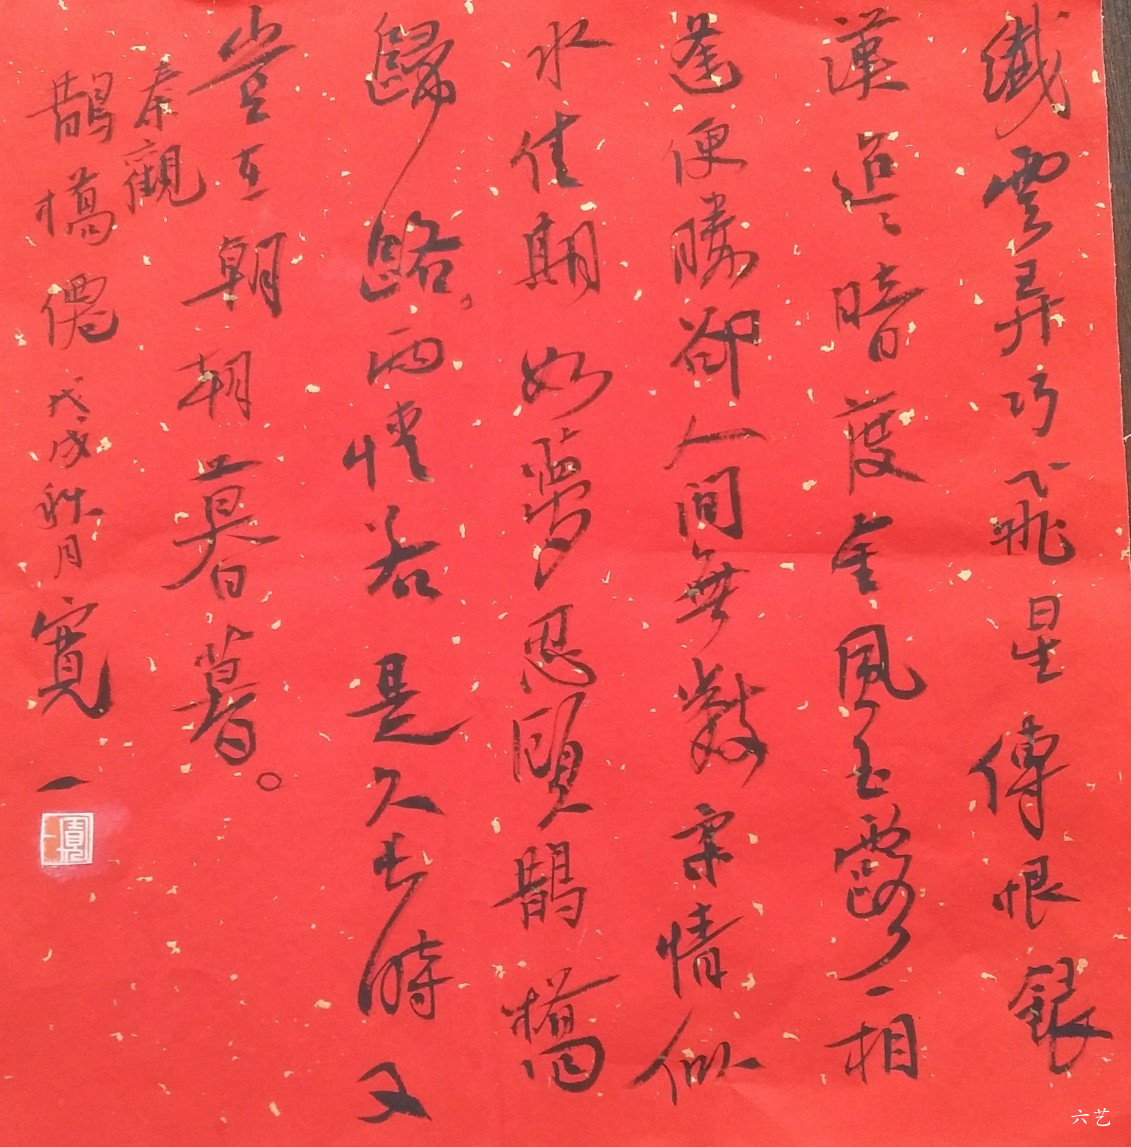 纖雲弄巧飛星傳恨銀
漢迢〻暗度金風玉露一相
逢便勝卻人間無數柔情似
水佳期如夢忍顧鵲橋
歸路。兩情若是久長時又
豈在朝朝暮暮。
秦觀
鵲橋僊 戊戌秋月 寬一
寬一
六艺